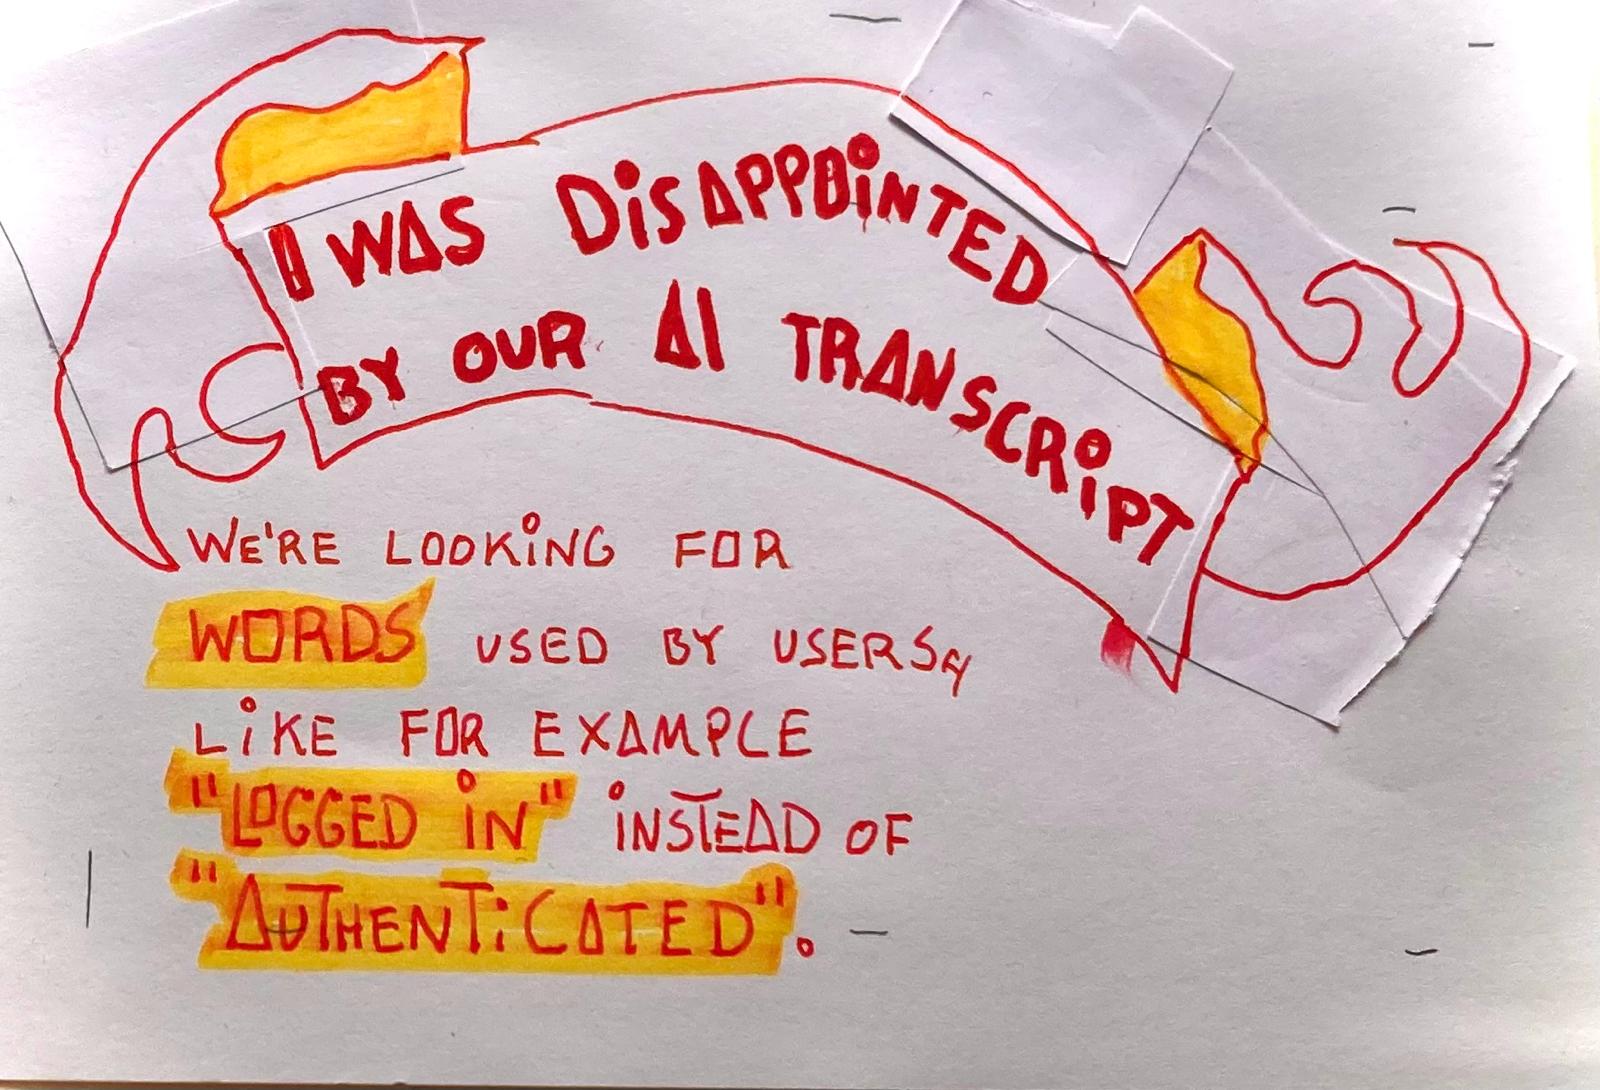 I WAS DISAPPOINTED
BY OUR AI TRANSCRIPT
WE'RE LOOKING FOR
WORDS USED BY USERS,
LIKE FOR EXAMPLE
"LOGGED IN" INSTEAD OF
"AUTHENTICATED".